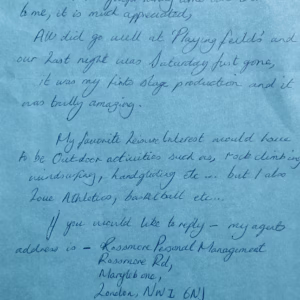 to me, it is much appreciated,
All did go well at 'Playing Fields' and
our last night was Saturday just gone,
it was my first stage production and it
was trully amazing.
My favorite Leisure Interest would have
to be Outdoor activities such as, rock climbing
windsurfing, handgliding etc... but I also
love Athletics, basketball etc...
If you would like to reply - my agents
address is - Rossmore Personal Management
Rossmore Rd,
Marylebone,
London, NW1 6NJ